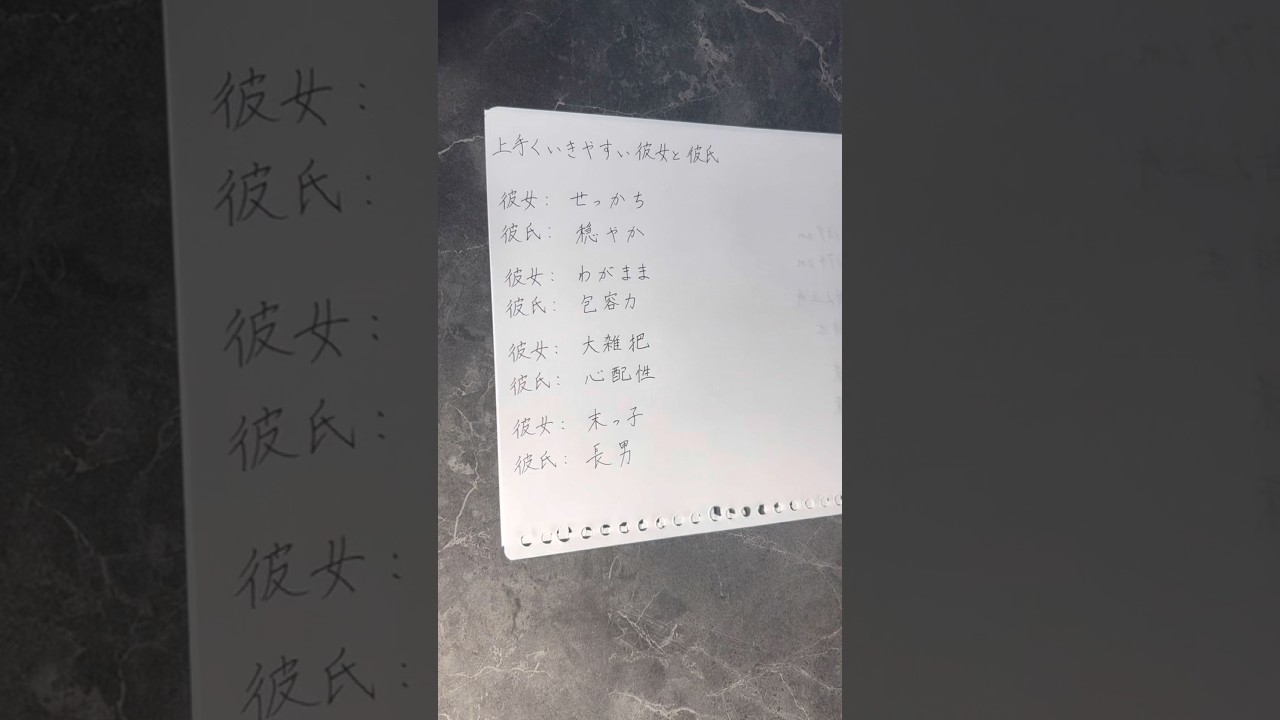 上手くいきやすい彼女と彼氏
彼女： せっかち
彼氏： 穏やか
彼女： わがまま
彼氏： 包容力
彼女： 大雑把
彼氏： 心配性
彼女： 末っ子
彼氏： 長男
彼女：
彼氏：
彼女：
彼氏：
彼女：
彼氏：